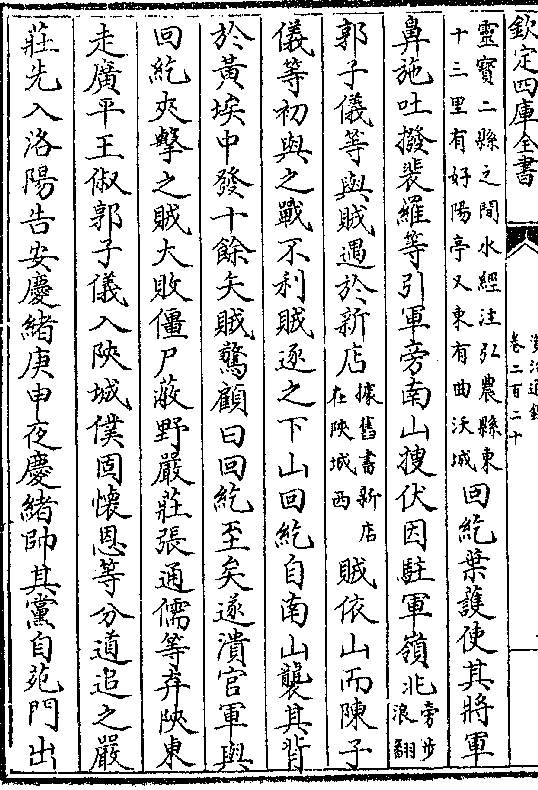 欽定四庫全書
資治通鑑
卷二百二十
靈寳二縣之間水經注弘農縣東
十三里有好陽亭又東有曲沃城
回紇葉護使其將軍
鼻施吐撥裴羅等引軍旁南山搜伏因駐軍嶺北
旁步
浪翻
郭子儀等與賊遇於新店
據舊書新店
在陜城西
賊依山而陳子
儀等初與之戰不利賊逐之下山回紇自南山襲其背
於黃埃中發十餘矢賊驚顧曰回紇至矣遂潰官軍與
回紇夾擊之賊大敗僵尸蔽野嚴莊張通儒等弃陜東
走廣平王俶郭子儀入陜城僕固懷恩等分道追之嚴
莊先入洛陽告安慶緒庚申夜慶緒帥其黨自苑門出